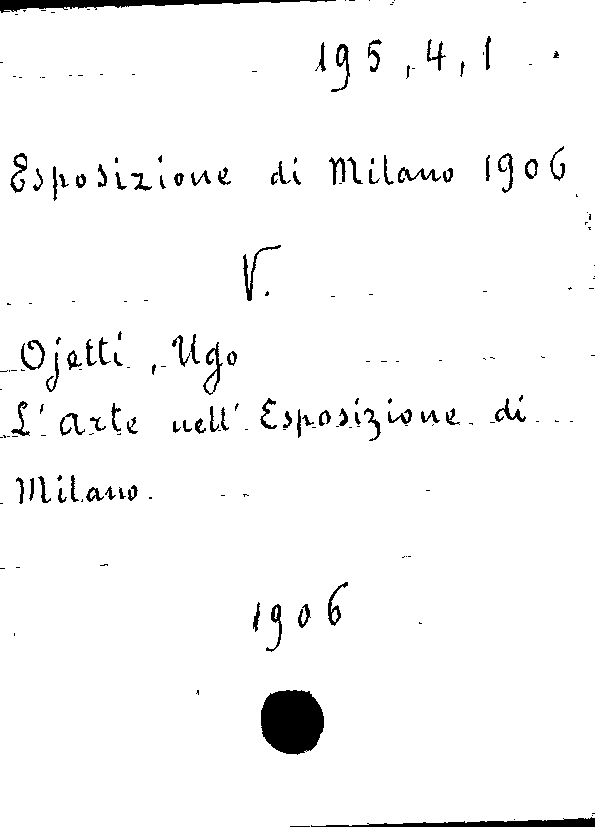 195,4,1
Esposizione di Milano 1906
V.
Ojetti, Ugo
L'Arte nell'Esposizione di
Milano.
1906